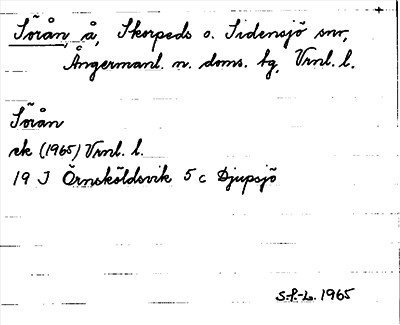 Sörån, å, Skorpeds o. Sidensjö snr,
Ångermanl. n. doms. tg, Vrnl. l.
Sörån
ek (1965) Vrnl. l.
19 J Örnsköldsvik 5 c Djupsjö
S.f.-L. 1965